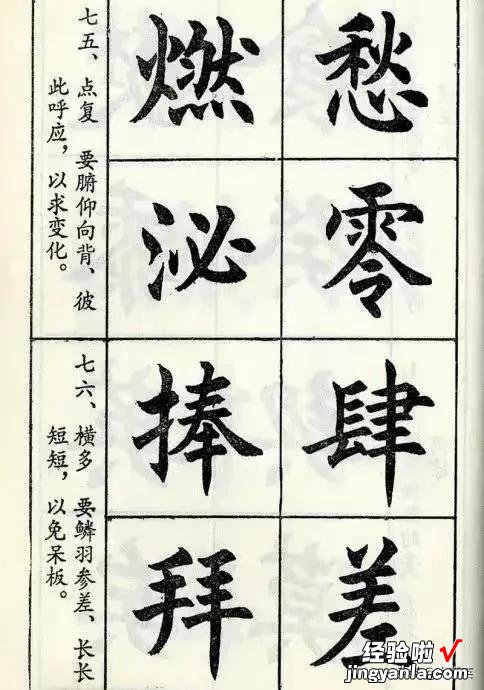 愁
零
燃
泌
七五、点复 要腑仰向背、彼
此呼应，以求变化。
肆
差
捧
拜
七六、横多 要鳞羽参差、长长
短短，以免呆板。
经验啦√
jingyanla.com